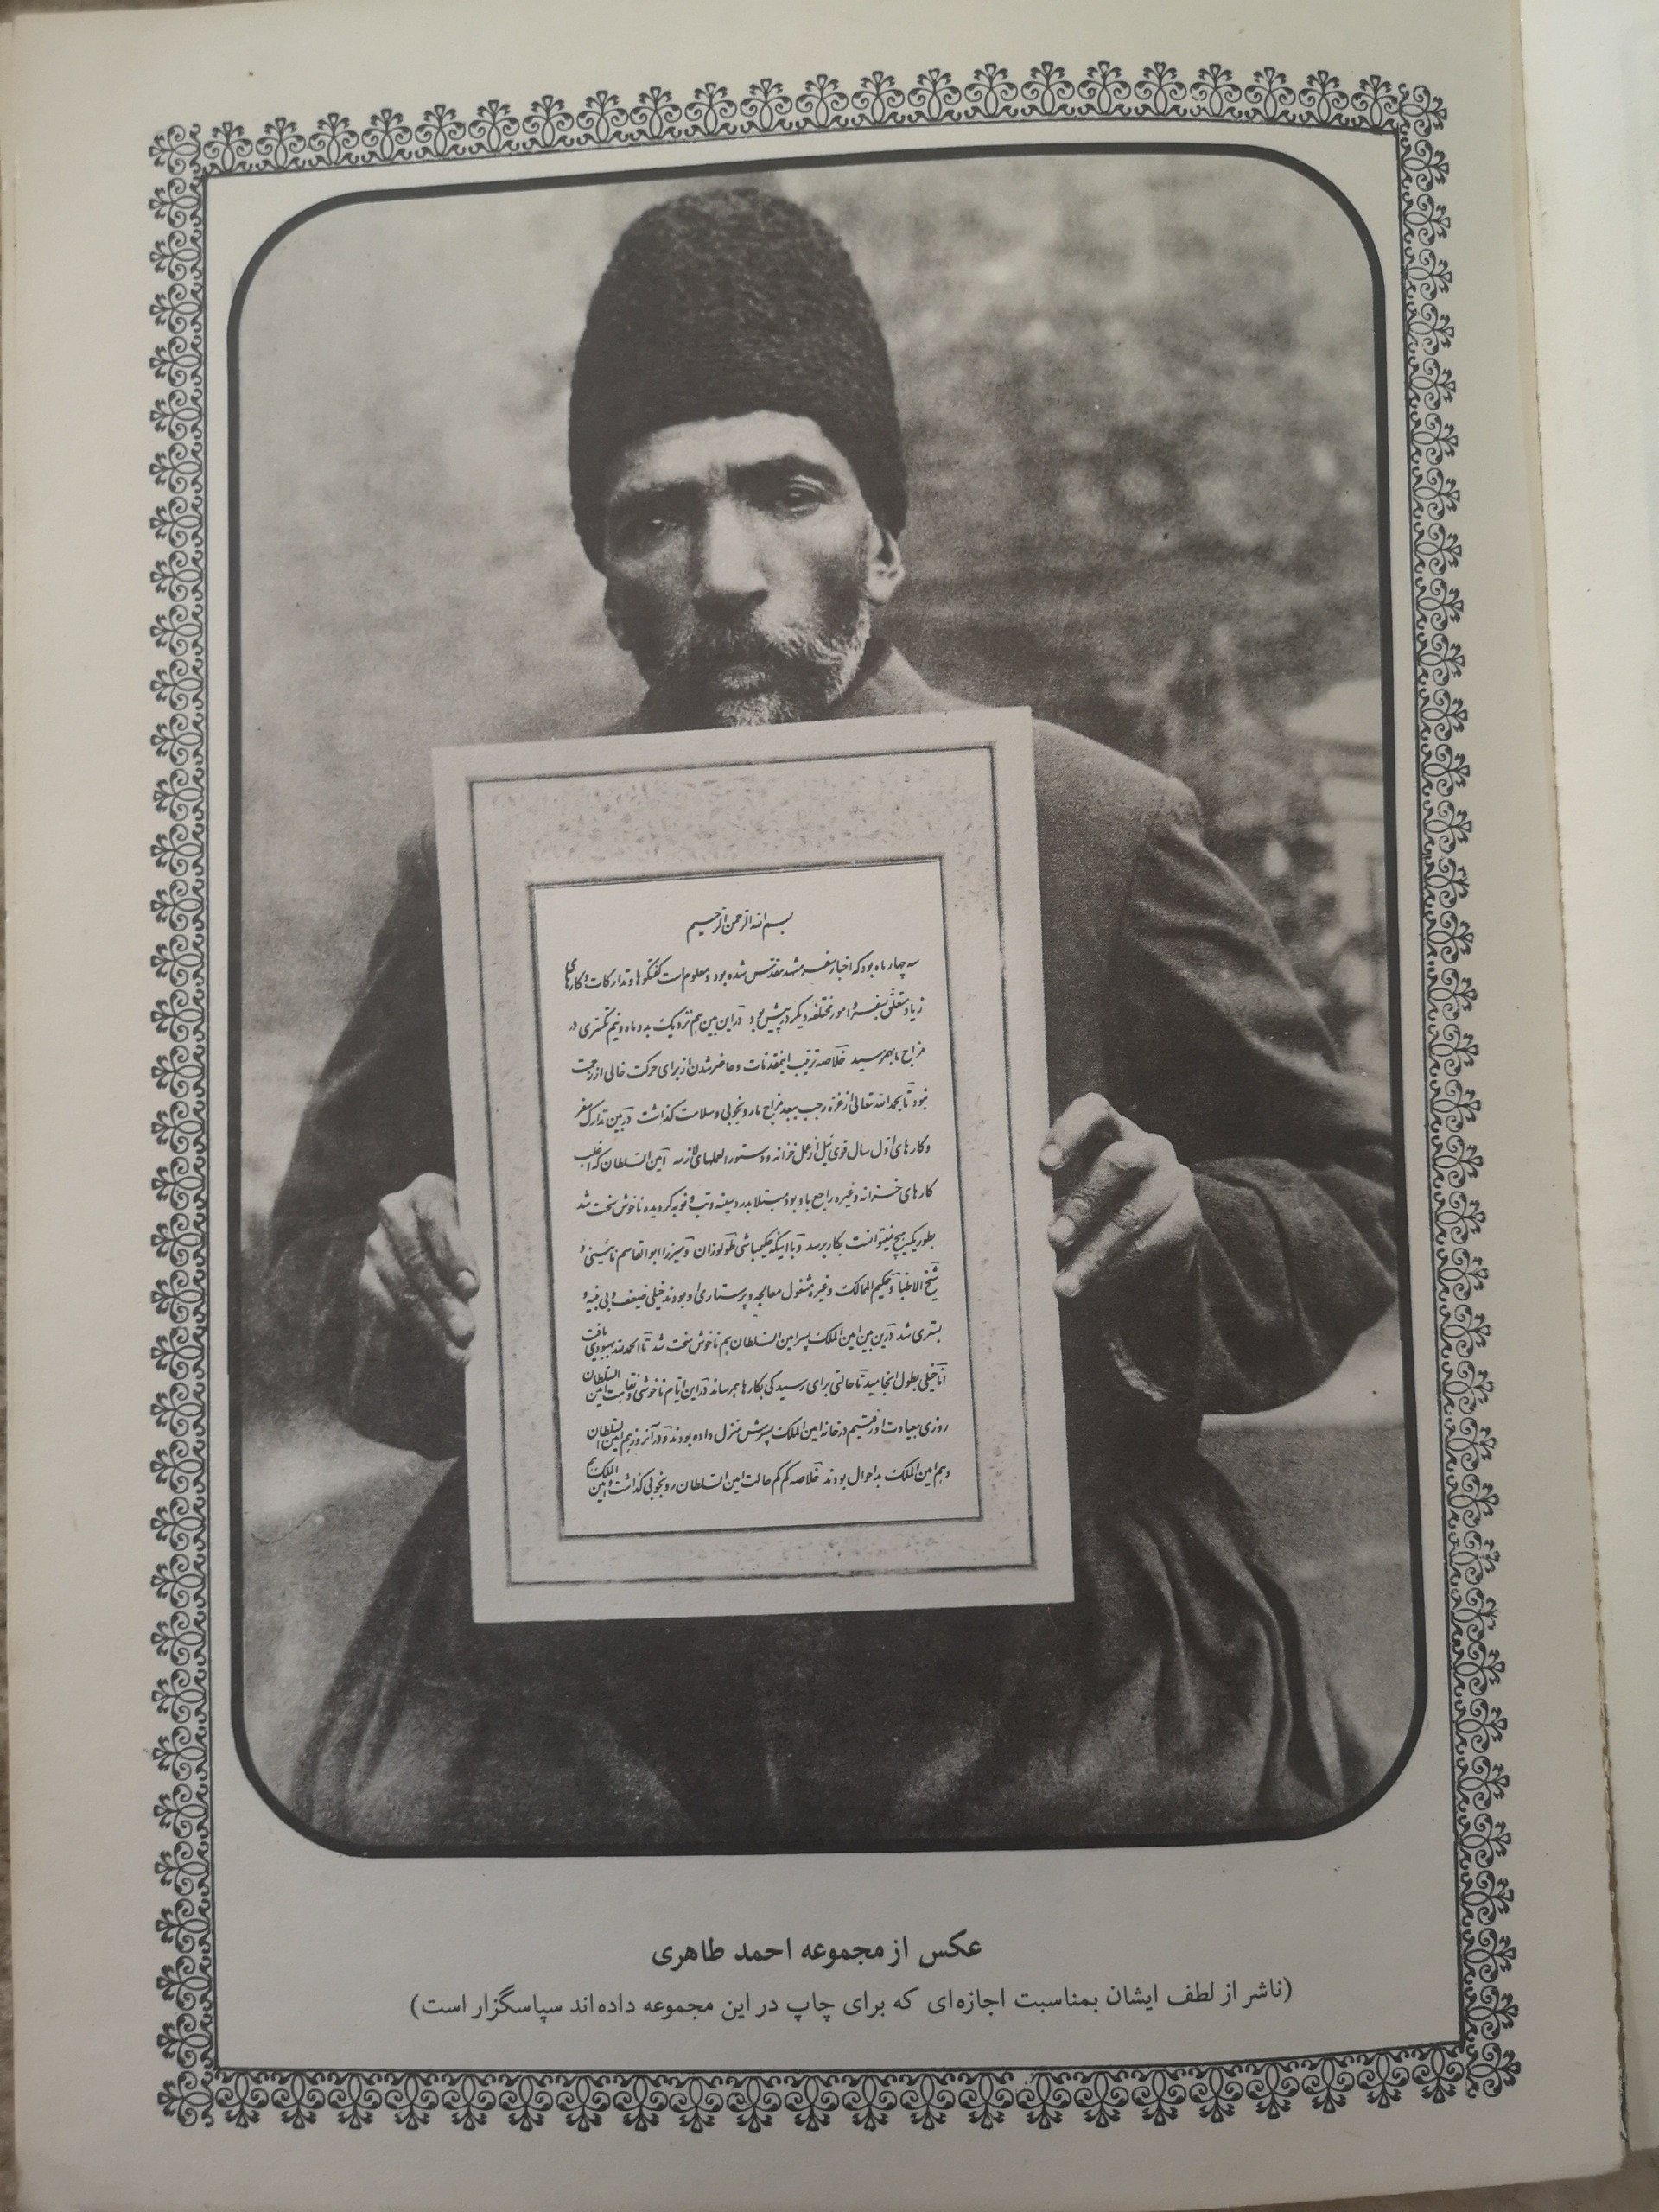 بسم الله الرحمن الرحیم
سه چهار ماه بود که اخبار سفر مشهد مقدس شده بود و معلوم است گفتگوها و تدارکات و کارهای
زیاد متعلق بسفر و امور مختلفه دیگر در پیش بود در این بین هم نزدیک بدو ماه و نیم کسری در
مزاج ما بهم رسید خلاصه ترتیب اینمقدمات و حاضر شدن از برای حرکت خالی از زحمت
نبود تا بحمد الله تعالی از غره رجب ببعد مزاج ما رو بخوبی و سلامت گذاشت در بین تدارک سفر
و کارهای اول سال قوی ئیل از عمل خزانه و دستور العملهای لازمه امین السلطان که اغلب
کارهای خزانه و غیره راجع باو بود مبتلا بدرد سینه و تب و نوبه گردیده ناخوش سخت شد
بطوریکه هیچ نمیتوانست بکار برسد و با اینکه حکیمباشی طولوزان و میرزا ابوالقاسم نائینی و
شیخ الاطبا و حکیم الممالک و غیره مشغول معالجه و پرستاری او بودند خیلی ضعیف و بی بنیه و
بستری شد در این بین امین الملک پسر امین السلطان هم ناخوش سخت شد تا الحمد لله بهبودی یافت
اما خیلی بطول انجامید تا حالتی برای رسیدگی بکارها بهم رساند در این ایام ناخوشی و نقاهت امین السلطان
روزی بعیادت او رفتیم در خانه امین الملک پسرش منزل داده بودند و در آنروز هم امین السلطان
و هم امین الملک بد احوال بودند خلاصه کم کم حالت امین السلطان رو بخوبی گذاشت و امین الملک هم
عکس از مجموعه احمد طاهری
(ناشر از لطف ایشان بمناسبت اجازه‌ای که برای چاپ در این مجموعه داده‌اند سپاسگزار است)